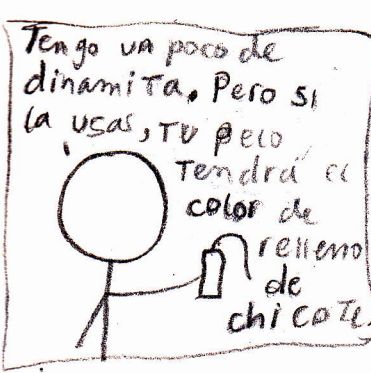 Tengo un poco de
dinamita. Pero si
la usas, tu pelo
Tendrá el
color de
relleno
de
chicoTe